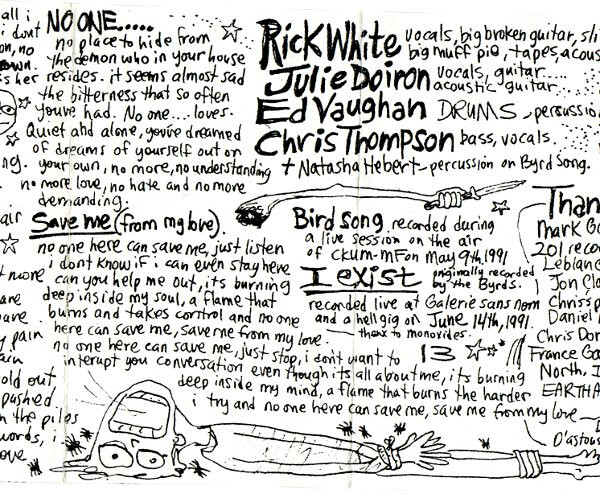 all i
i dont
on, no
own.
ss her
ng.
air
more
are
ve
pain
ain
old out
pushed
n the piles
words, i
ove
NO ONE.....
no place to hide from
the demon who in your house
resides. it seems almost sad
the bitterness that so often
youve had. No one....loves.
Quiet ahd alone, you've dreamed
of dreams of yourself out on
your own, no more, no understanding
no more love, no hate and no more
demanding.
Save me (from my love).
no one here can save me, just listen
i dont know if i can even stay here
can you help me out, its burning
deep inside my soul, a flame that
burns and takes control and no one
here can save me, save me from my love.
no one here can save me, just stop, i don't want to
interupt you conversation even though its all about me, its burning
deep inside my mind, a flame that burns the harder
i try and no one here can save me, save me from my love
Rick White vocals, big broken guitar, sli
big muff pie, tapes, acous
Julie Doiron vocals, guitar....
acoustic guitar
Ed Vaughan DRUMS, percussion
Chris Thompson bass, vocals.
+ Natasha Hebert - percussion on Byrd Song.
Bird song recorded during
a live session on the air
of CKUM-MF on May 9th, 1991
I exist originally recorded
by the Byrds.
recorded live at Galerie sans nom
and a hell gig on June 14th, 1991.
thanx to monoxides.
13
Than
Mark Ga
201 reco
Leblanc
Jon Cla
Chris sp
Daniel
Chris Don
France Go
North, I
EARTHA
D'astous